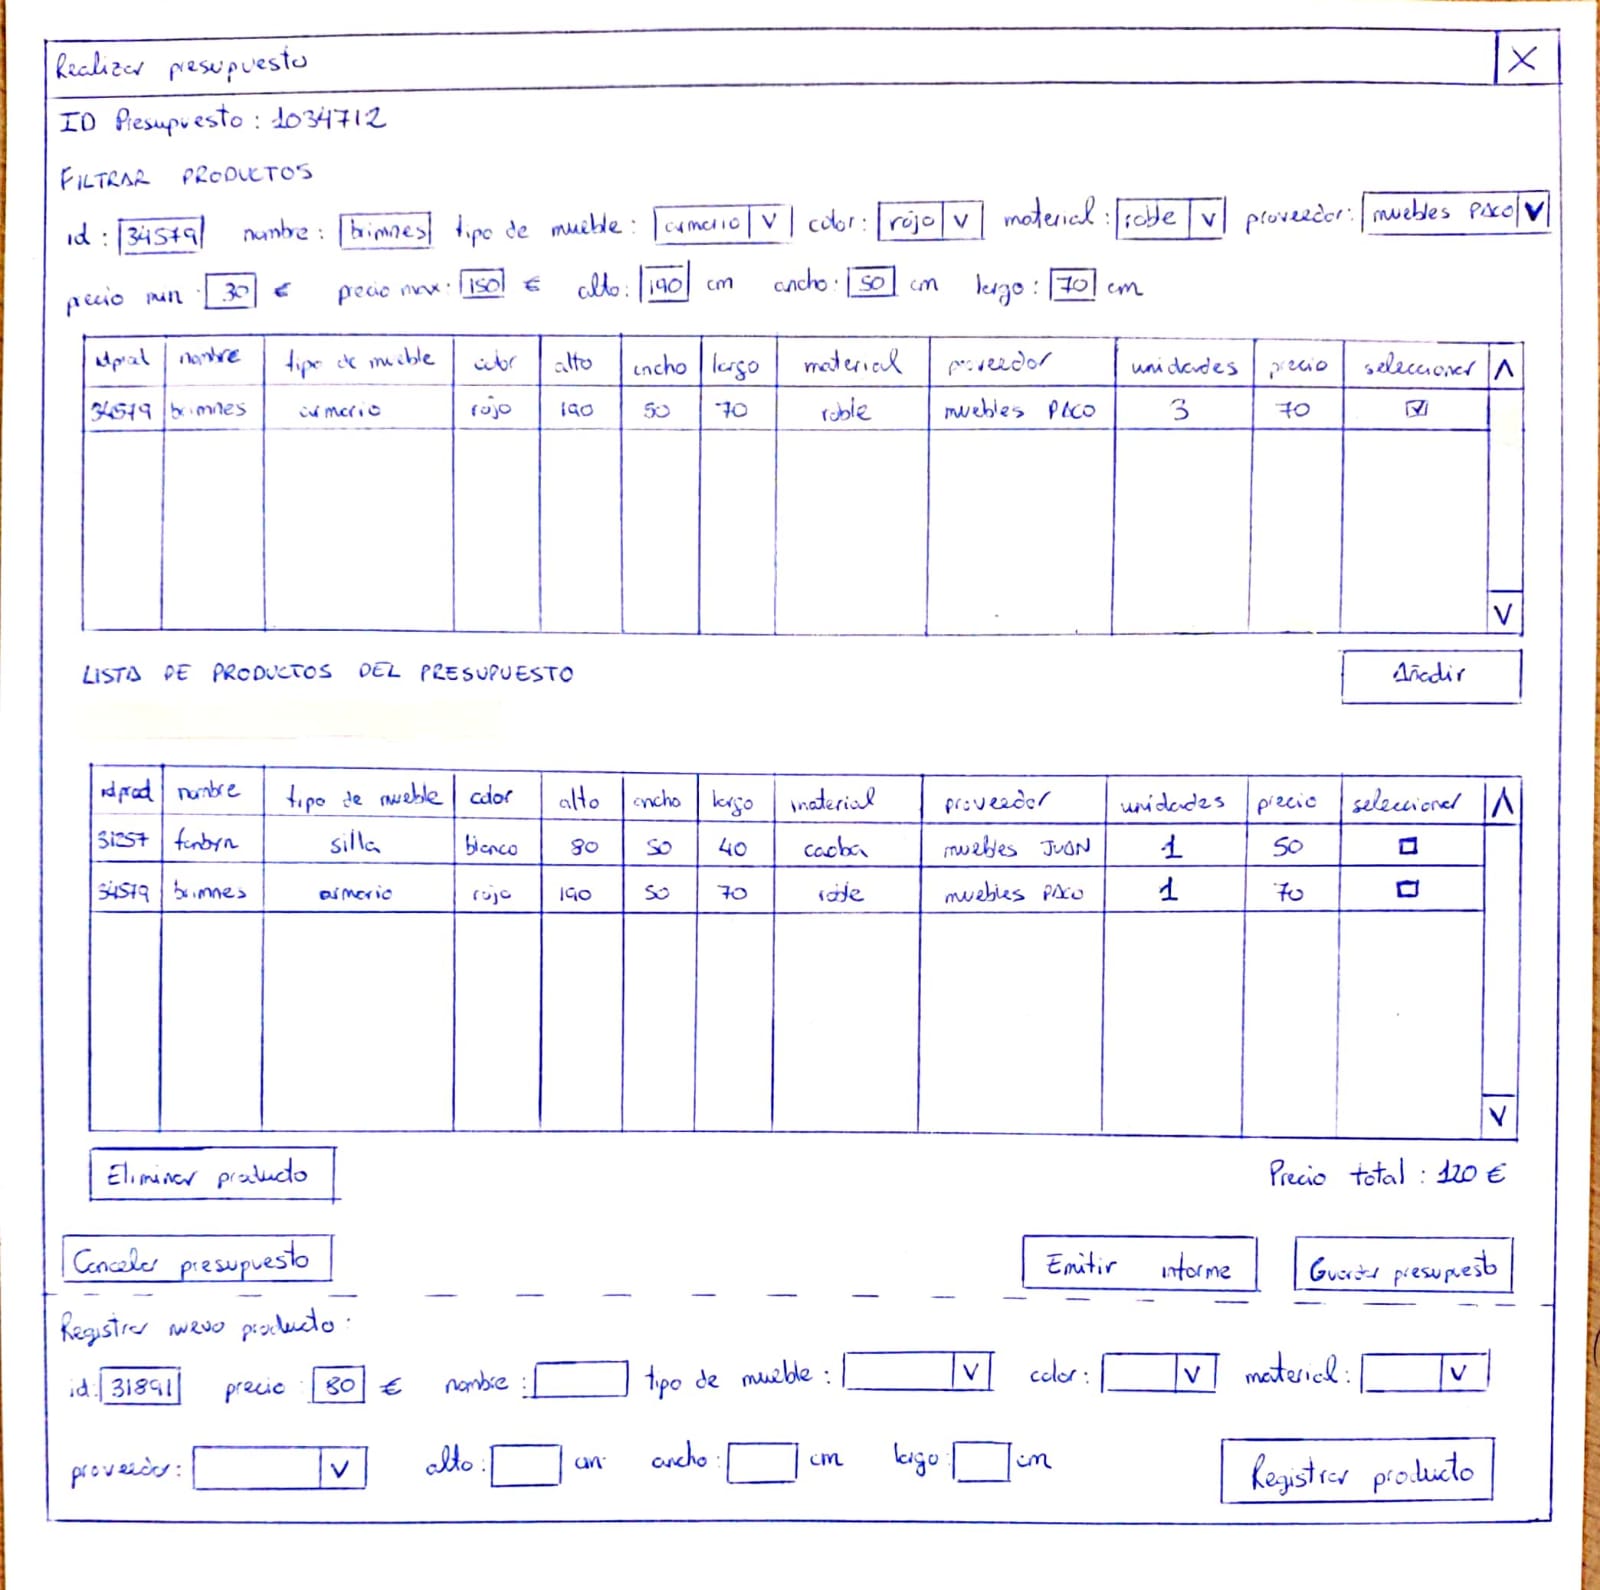 Realizar presupuesto X
ID Presupuesto : 1034712
FILTRAR PRODUCTOS
id : 34579 nombre : brimnes tipo de mueble : armario V color : rojo V material : roble V proveedor : muebles PACO V
precio min : 30 € precio max : 150 € alto : 190 cm ancho : 50 cm largo : 70 cm
idprod nombre tipo de mueble color alto ancho largo material proveedor unidades precio seleccionar
34579 brimnes armario rojo 190 50 70 roble muebles PACO 3 70
LISTA DE PRODUCTOS DEL PRESUPUESTO Añadir
idprod nombre tipo de mueble color alto ancho largo material proveedor unidades precio seleccionar
31257 silla blanco 80 50 40 caoba muebles JUAN 1 50
34579 brimnes armario rojo 190 50 70 roble muebles PACO 1 70
Eliminar producto Precio total : 120 €
Cancelar presupuesto Emitir informe Guardar presupuesto
Registrar nuevo producto :
id : 31891 precio : 80 € nombre : tipo de mueble : V color : V material : V
proveedor : V alto : cm ancho : cm largo : cm Registrar producto